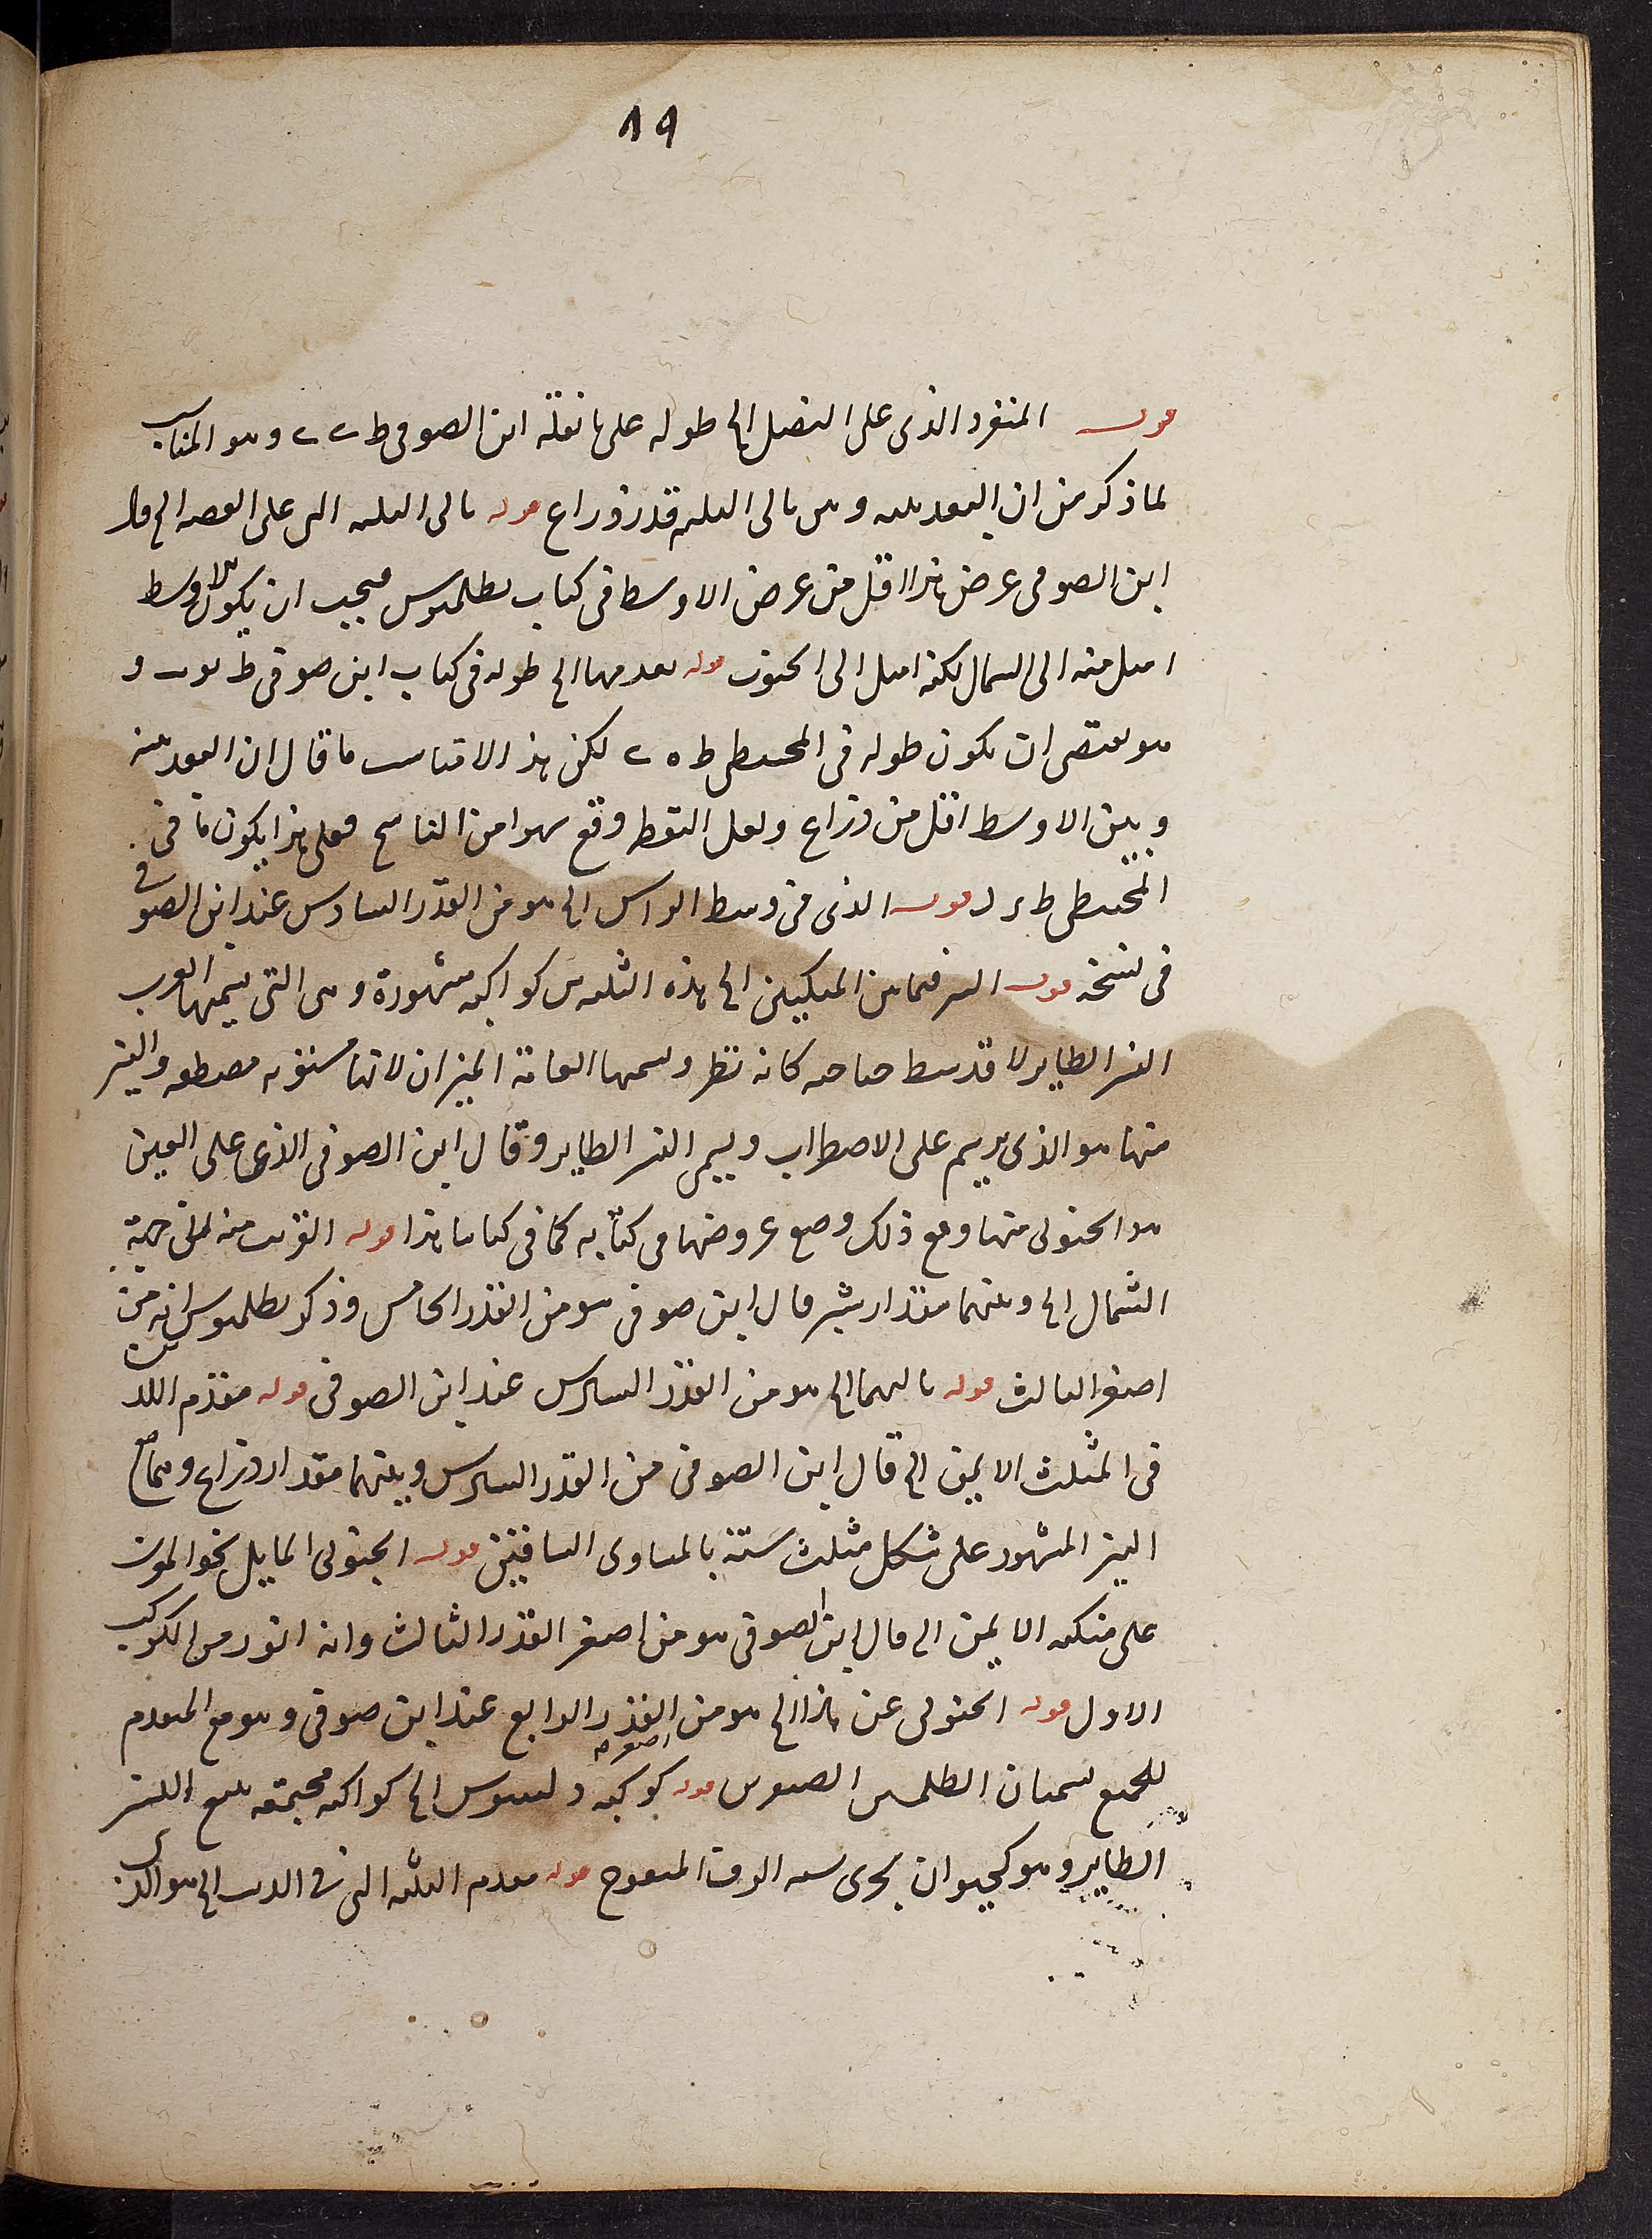 19
قوله المنفرد الذى على النصل الخ طوله على ما نقله ابن الصوفى ط ك ك وهو المناسب
لما ذكر من ان البعد بينه وبين تالى الثلثة قدر ذراع قوله تالى الثلثة التى على القصبة الخ قال
ابن الصوفى عرض هذا اقل من عرض الاوسط فى كتاب بطلميوس فيجب ان يكون الاوسط
اميل منه الى الشمال لكنه اميل الى الجنوب قوله بعدهما الخ طوله فى كتاب ابن صوفى ط و
هو يقتضى ان يكون طوله فى المجسطى ط لكن هذا لا يناسب ما قال ان البعد بينه
وبين الاوسط اقل من ذراع ولعل النقط وقع سهوا من الناسخ فعلى هذا يكون ما فى
المجسطى ط قوله الذى فى وسط الراس الخ هو من القدر السادس عند ابن الصوفى
فى نسخة قوله النير فيما بين المنكبين الخ هذه الثلثة كواكبه مشهورة وهى التى يسميها العرب
النسر الطاير لا قد بسط جناحيه كانه تطير ويسميها العامة الميزان لانها مستوية مصطفة والنير
منها هو الذى يرسم على الاصطرلاب ويسمى النسر الطاير وقال ابن الصوفى الذى على اليمين
هو الجنوبى منها ومع ذلك وضع عروضها فى كتابه كما فى كتابنا هذا قوله القريب منه الى جهة
الشمال الخ وبينهما مقدار شبر قال ابن صوفى هو من القدر الخامس وذكر بطلميوس انه من
اصغر الثالث قوله تاليهما الخ هو من القدر السادس عند ابن الصوفى قوله متقدم اللذين
فى المثلث الايمن الخ قال ابن الصوفى من القدر السادس وبينهما مقدار ذراع وهما مع
النير المشهور على شكل مثلث شبيه بالمساوى الساقين قوله الجنوبى المايل نحو
على منكبه الايمن الخ قال ابن الصوفى هو من اصغر القدر الثالث وانه انور من الكوكب
الاول قوله الجنوبى عن هذا الخ هو من اصغره القدر الرابع عند ابن صوفى وهو مع المتقدم
للجميع يسميان الظليمين قوله كوكبة دلفينوس الخ كواكبه مجتمعة تتبع النسر
الطاير وهو كحيوان بحرى يشبه الزق المنفوخ قوله متقدم الثلثة التى فى الذنب الخ هو الذى